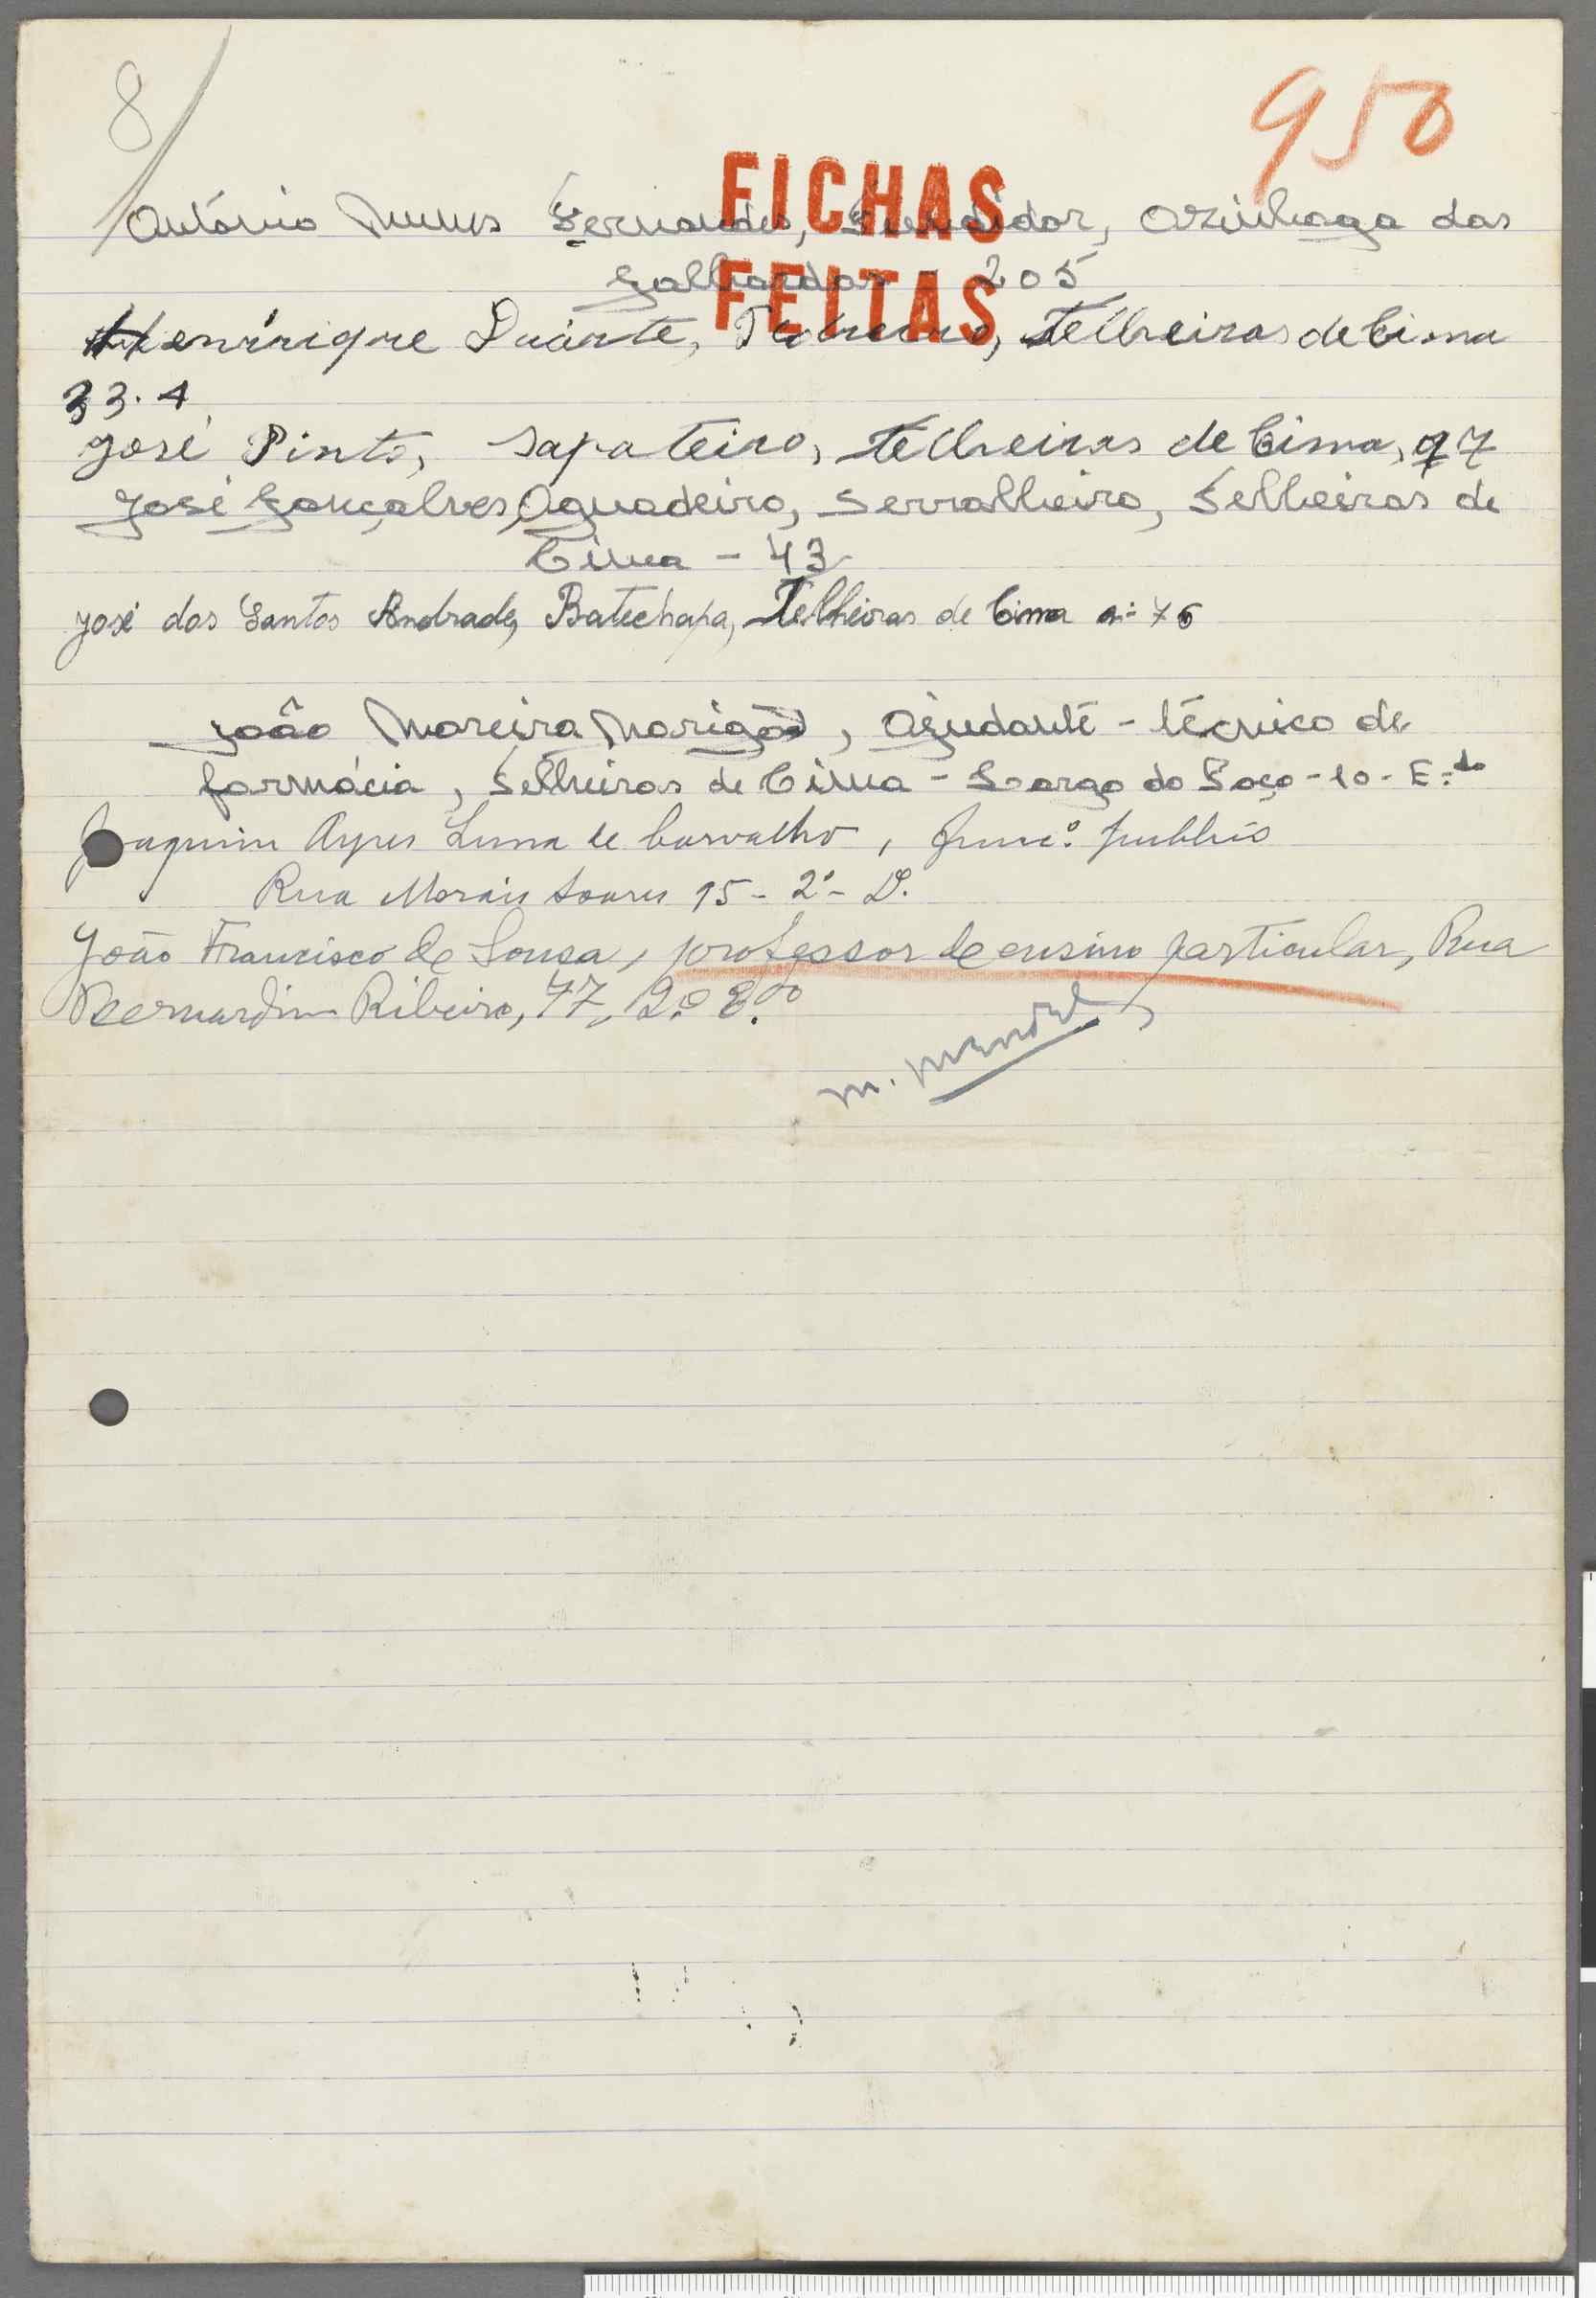 8
950
FICHAS
FEITAS
António Nunes Fernandes, Fundidor, Azinhaga das
Galhardas 205
Henrrique Duarte, Pedreiro, Telheiras de Cima
33. A
José Pinto, Sapateiro, Telheiras de Cima, 97
José Gonçalves Aguadeiro, Serralheiro, Telheiras de
Cima - 43
José dos Santos Andrade, Batechapa, Telheiras de Cima nº 76
João Moreira Morigo, Ajudante - técnico de
farmácia, Telheiras de Cima - Largo do Poço - 10 - E.do
Joaquim Ayres Luna de Carvalho, func.º publico
Rua Morais Soares 15 - 2º - D.
João Francisco de Sousa, professor de ensino particular, Rua
Bernardim Ribeiro, 77, 2.º E.do
M.